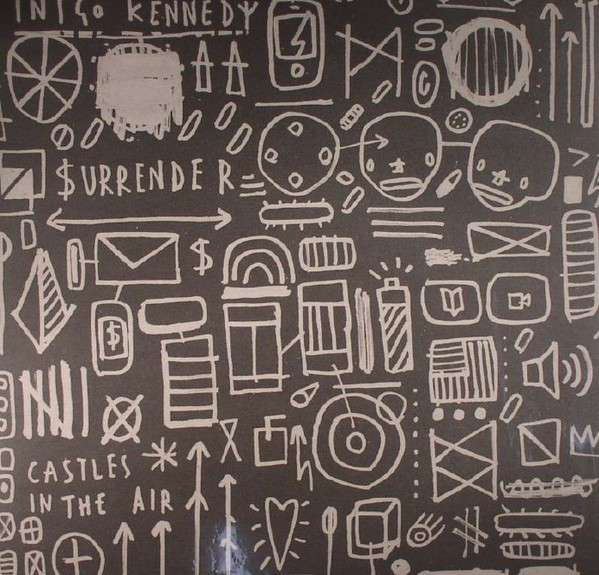 INIGO KENNEDY
$URRENDER
$
$
CASTLES
IN THE AIR